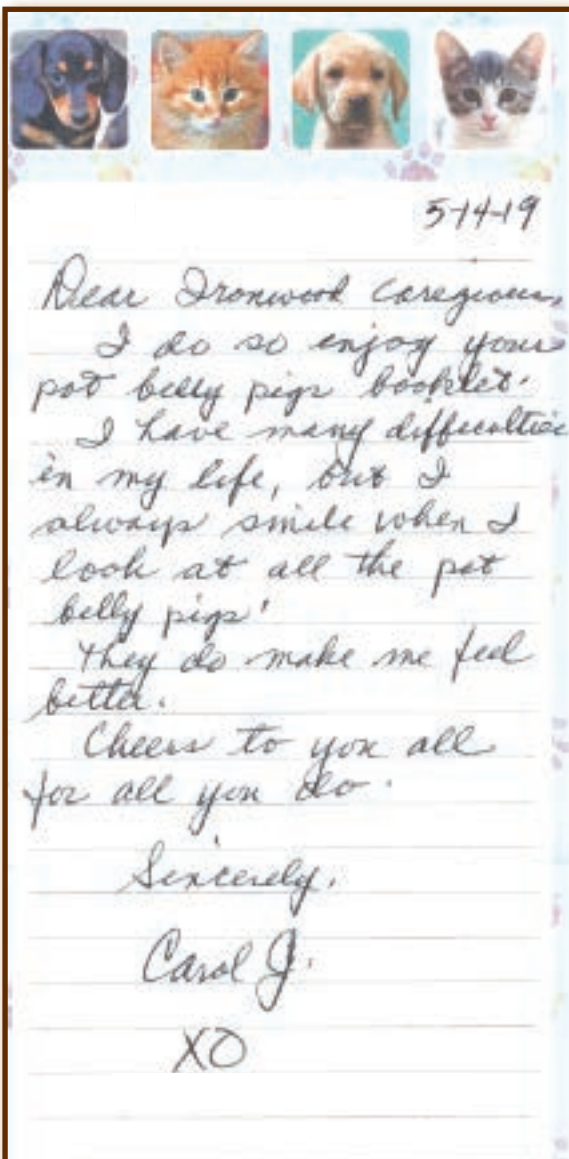 5-14-19
Dear Ironwood caregivers,
I do so enjoy your
pot belly pigs booklet.
I have many difficulties
in my life, but I
always smile when I
look at all the pot
belly pigs!
They do make me feel
better.
Cheers to you all
for all you do.
Sincerely,
Carol J.
XO